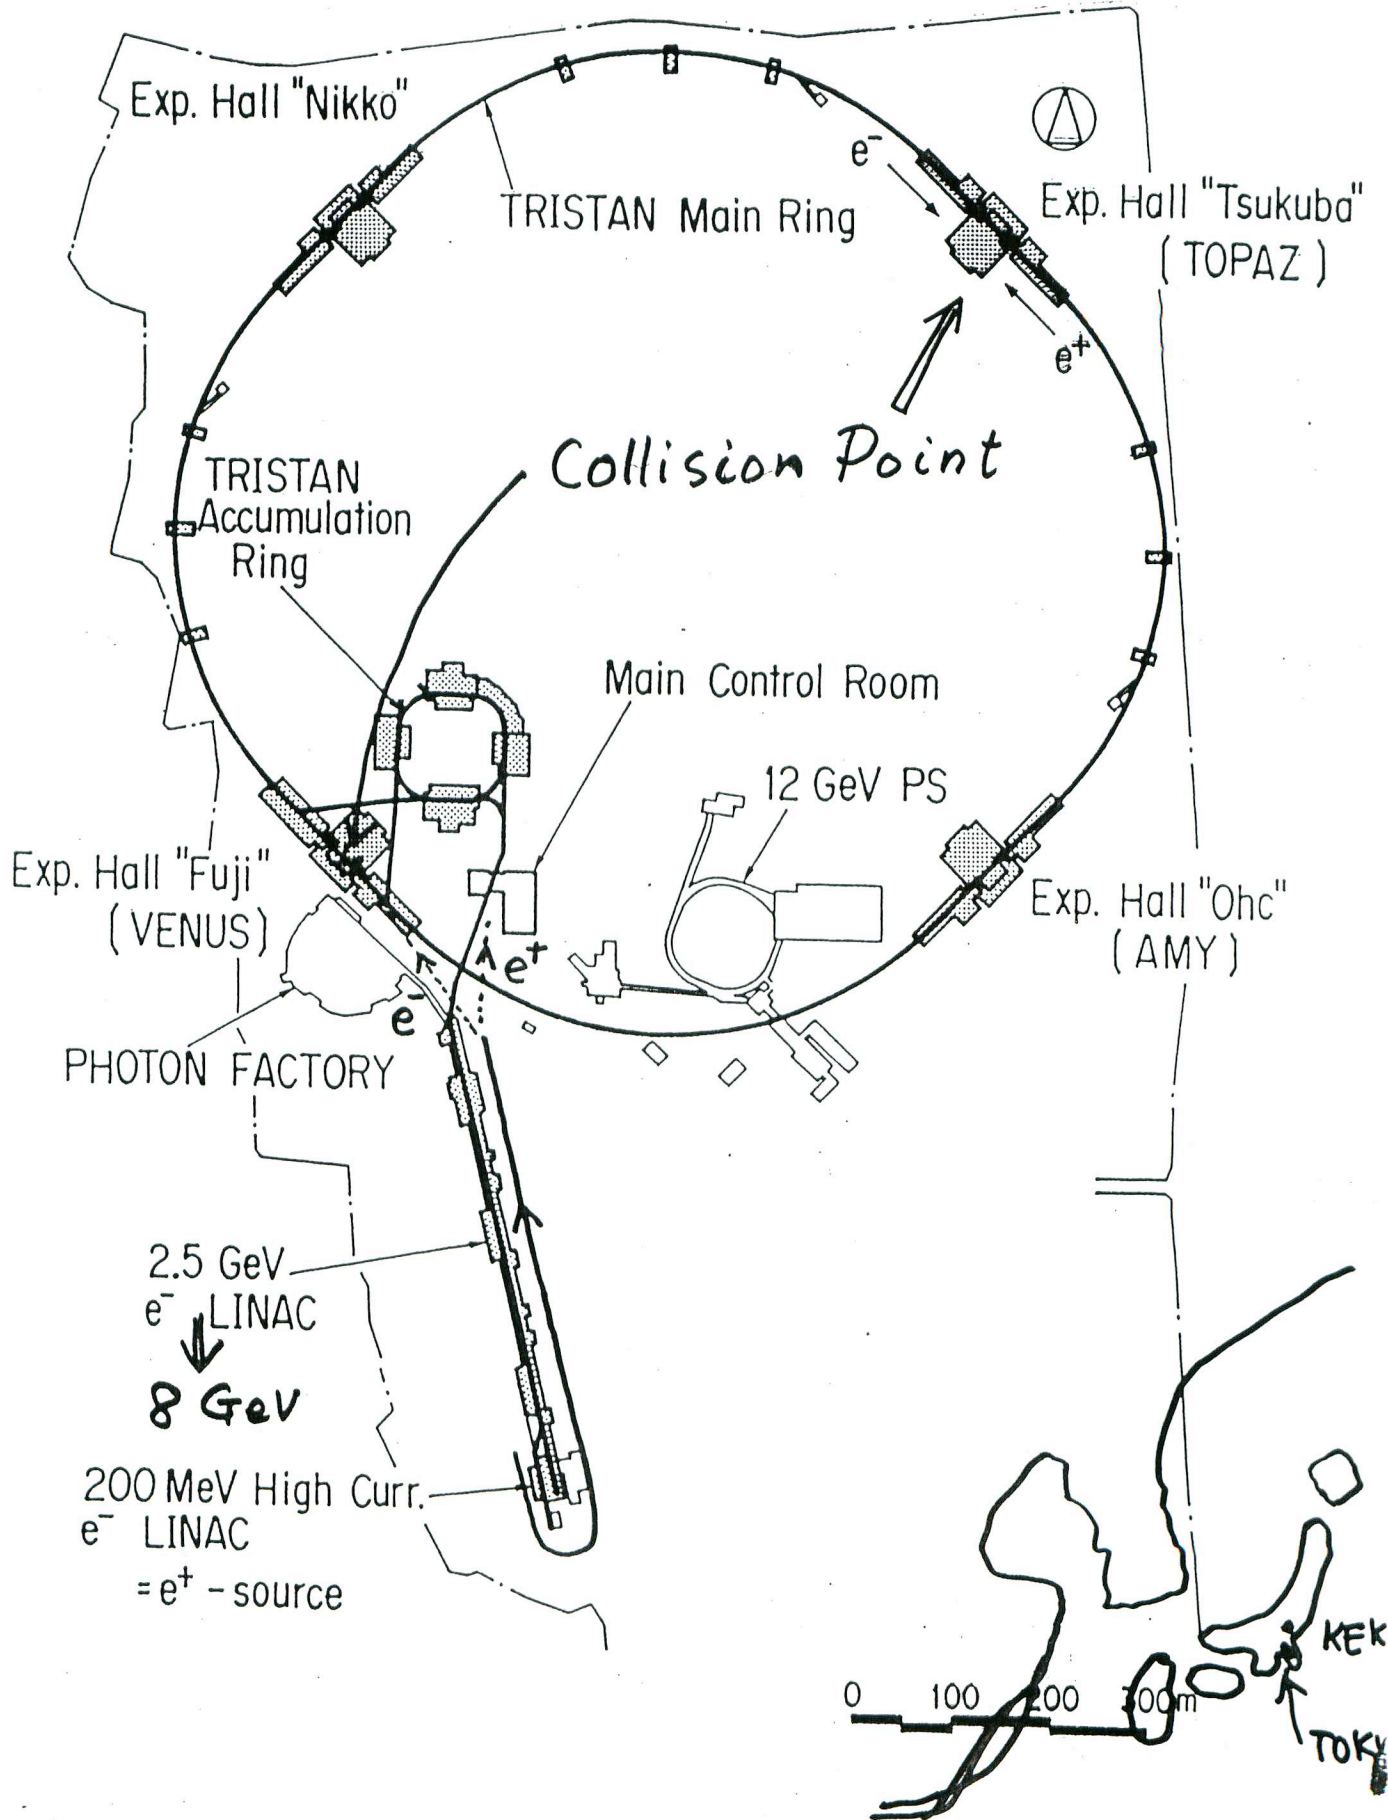 Exp. Hall "Nikko"
e⁻
TRISTAN Main Ring
Exp. Hall "Tsukuba"
(TOPAZ)
e⁺
Collision Point
TRISTAN
Accumulation
Ring
Main Control Room
12 GeV PS
Exp. Hall "Fuji"
(VENUS)
Exp. Hall "Oho"
(AMY)
e⁺
e⁻
PHOTON FACTORY
2.5 GeV
e⁻ LINAC
8 GeV
200 MeV High Curr.
e⁻ LINAC
= e⁺ - source
KEK
0 100 200 300m